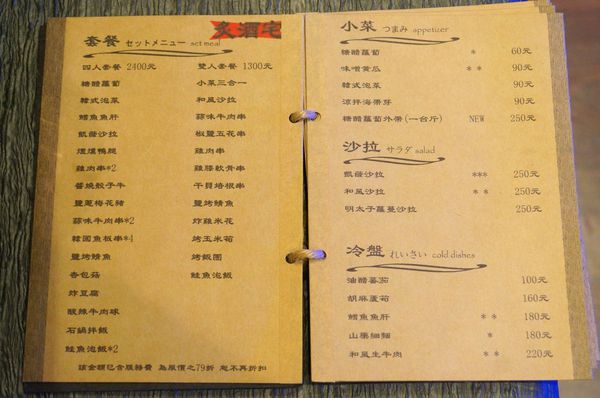 炙酒宅
套餐 セットメニュー set meal
四人套餐 2400元 雙人套餐 1300元
糖醋蘿蔔 小菜三合一
韓式泡菜 和風沙拉
鱈魚魚肝 蒜味牛肉串
凱薩沙拉 椒鹽五花串
煙燻鴨腿 雞肉串
雞肉串*2 雞膝軟骨串
醬燒骰子牛 干貝培根串
鹽蔥梅花豬 鹽烤鯖魚
蒜味牛肉串*2 炸雞米花
韓國魚板串*4 烤玉米筍
鹽烤鯖魚 烤飯糰
杏包菇 鮭魚泡飯
炸豆腐
酸辣牛肉球
石鍋拌飯
鮭魚泡飯*2
該金額已含服務費 為原價之79折 恕不再折扣
小菜 つまみ appetizer
糖醋蘿蔔 * 60元
味噌黃瓜 * * 90元
韓式泡菜 90元
涼拌海帶芽 90元
糖醋蘿蔔外帶(一台斤) NEW 250元
沙拉 サラダ salad
凱薩沙拉 *** 250元
和風沙拉 * * 250元
明太子蘿蔓沙拉 250元
冷盤 れいさい cold dishes
油醋蕃茄 100元
胡麻蘆筍 160元
鱈魚魚肝 * * 180元
山藥細麵 * 180元
和風生牛肉 * * 220元